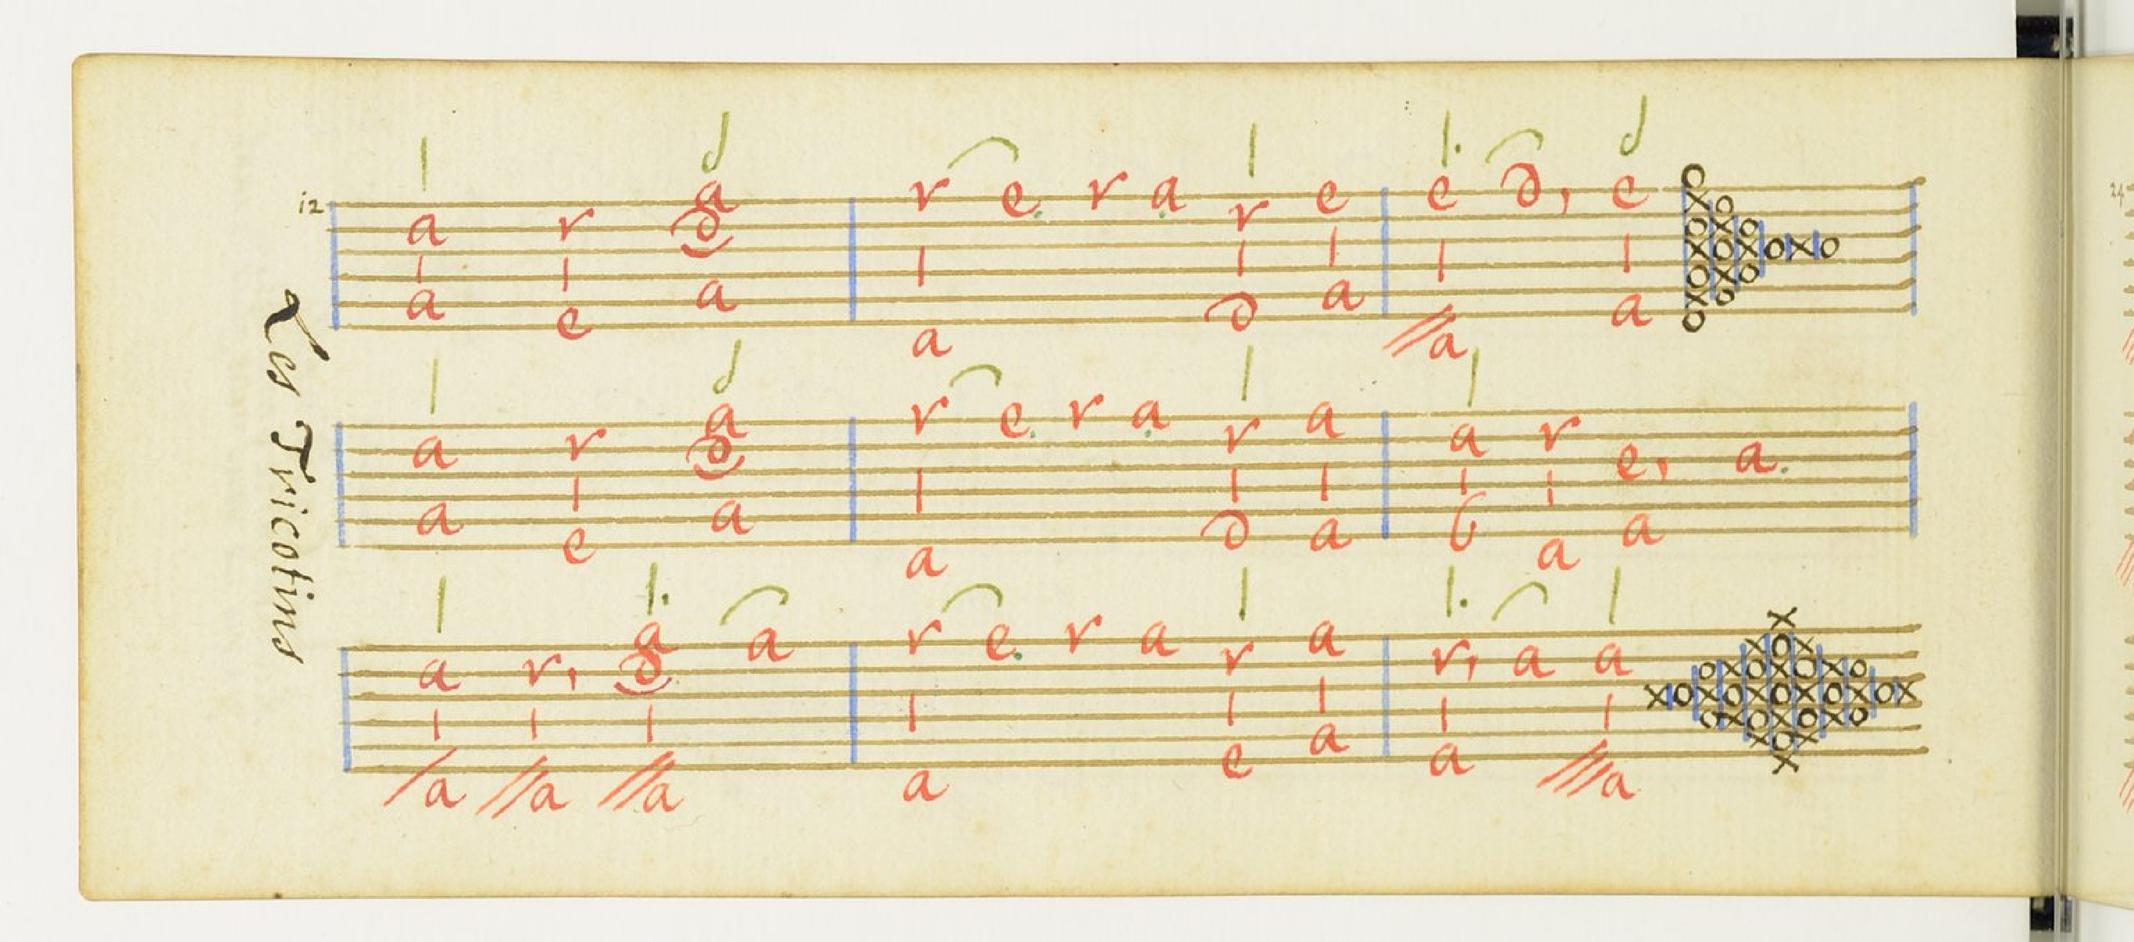 12
Les Tricotins
a r a r e. r a r e e ∂, e
∂
a e a a ∂ a //a a
a r a r e. r a r a a r e, a.
∂
a e a a ∂ a b a a
a r, a a r e. r a r a r, a a
∂
/a //a //a a e a a ///a